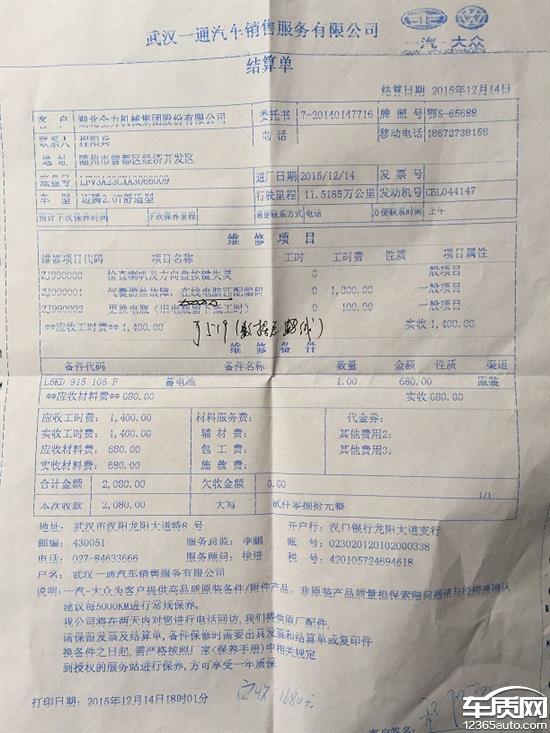 武汉一通汽车销售服务有限公司
一汽-大众
FAW-VOLKSWAGEN
结算单
结算日期 2015年12月14日
客 户 湖北全力机械集团股份有限公司 委托书 7-20140147716 牌照号 鄂S-65688
联系人 程阳兵 电话 移动电话 18672738159
地 址 随州市曾都区经济开发区
底盘号 LFV3A23CXA3066009 进厂日期 2015/12/14 发票号
车 型 迈腾2.0T舒适型 行驶里程 11.5185万公里 发动机号 CBL044147
预计下次保养时间 下次保养里程 希望联系方式 电话 方便联系时间 上午
维修项目
维修项目代码 项目名称 工时 工时费 性质 项目属性
ZJ990000 检查喇叭及方向盘按键失灵 0 一般项目
ZJ990001 气囊游丝故障 在线电脑匹配编码 0 1,300.00 一般项目
ZJ990002 更换电瓶 0 100.00 一般项目
**应收工时费:1,400.00 实收 1,400.00
J519
维修备件
备件代码 备件名称 数量 金额 性质 渠道
L5KD 915 105 F 蓄电池 1.00 680.00 原装
**应收材料费:680.00 实收 680.00
应收工时费: 1,400.00 材料服务费: 代金券:
实收工时费: 1,400.00 辅材费: 其他费用2:
应收材料费: 680.00 包工费: 其他费用3:
实收材料费: 680.00 施救费:
合计金额 2,080.00 欠收金额 0.00
1/1
本次收款 2,080.00 大写 贰仟零捌拾元整
地址: 武汉市汉阳龙阳大道特8 号 开户行: 汉口银行龙阳大道支行
邮编: 430051 服务总监: 李鹏 账 号: 023020120102000338
电话: 027-84633666 服务顾问: 徐进 税 号: 420105724694618
户名: 武汉一通汽车销售服务有限公司
说明:一汽-大众为客户提供高品质原装备件/附件产品, 非原装产品质量担保索赔问题请与经销商确认
建议每5000KM进行常规保养。
我公司将在两天内对您进行电话回访,我们提供原厂配件,
请保留发票及结算单,备件保修时需要出具发票和结算单或复印件
换备件之日起,需严格按照厂家《保养手册》中相关规定
到授权的服务站进行保养,方可享受一年质保
打印日期: 2015年12月14日18时01分
实收:1680元
客户签名:
车质网
12365auto.com